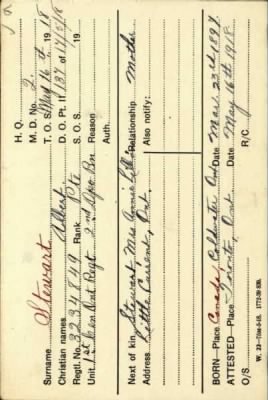 H. Q.
M. D. No. 2.
Surname Stewart T. O. S. May 16th 1918
Christian names Albert D. O. Pt. II 137 of 17/5/18
Regtl. No. 3234849 Rank Pte S. O. S. 19
Unit 1st Cen. Ont. Regt. 2nd Depo Bn Reason
Auth.
Next of kin Stewart Mrs Annie Relationship Mother
Address Little Current, Ont. Also notify:
BORN—Place Canada, Coldwater Ont Date Mar. 23rd 1897
ATTESTED—Place Toronto, Ont. Date May 16th 1918.
O/S R/C